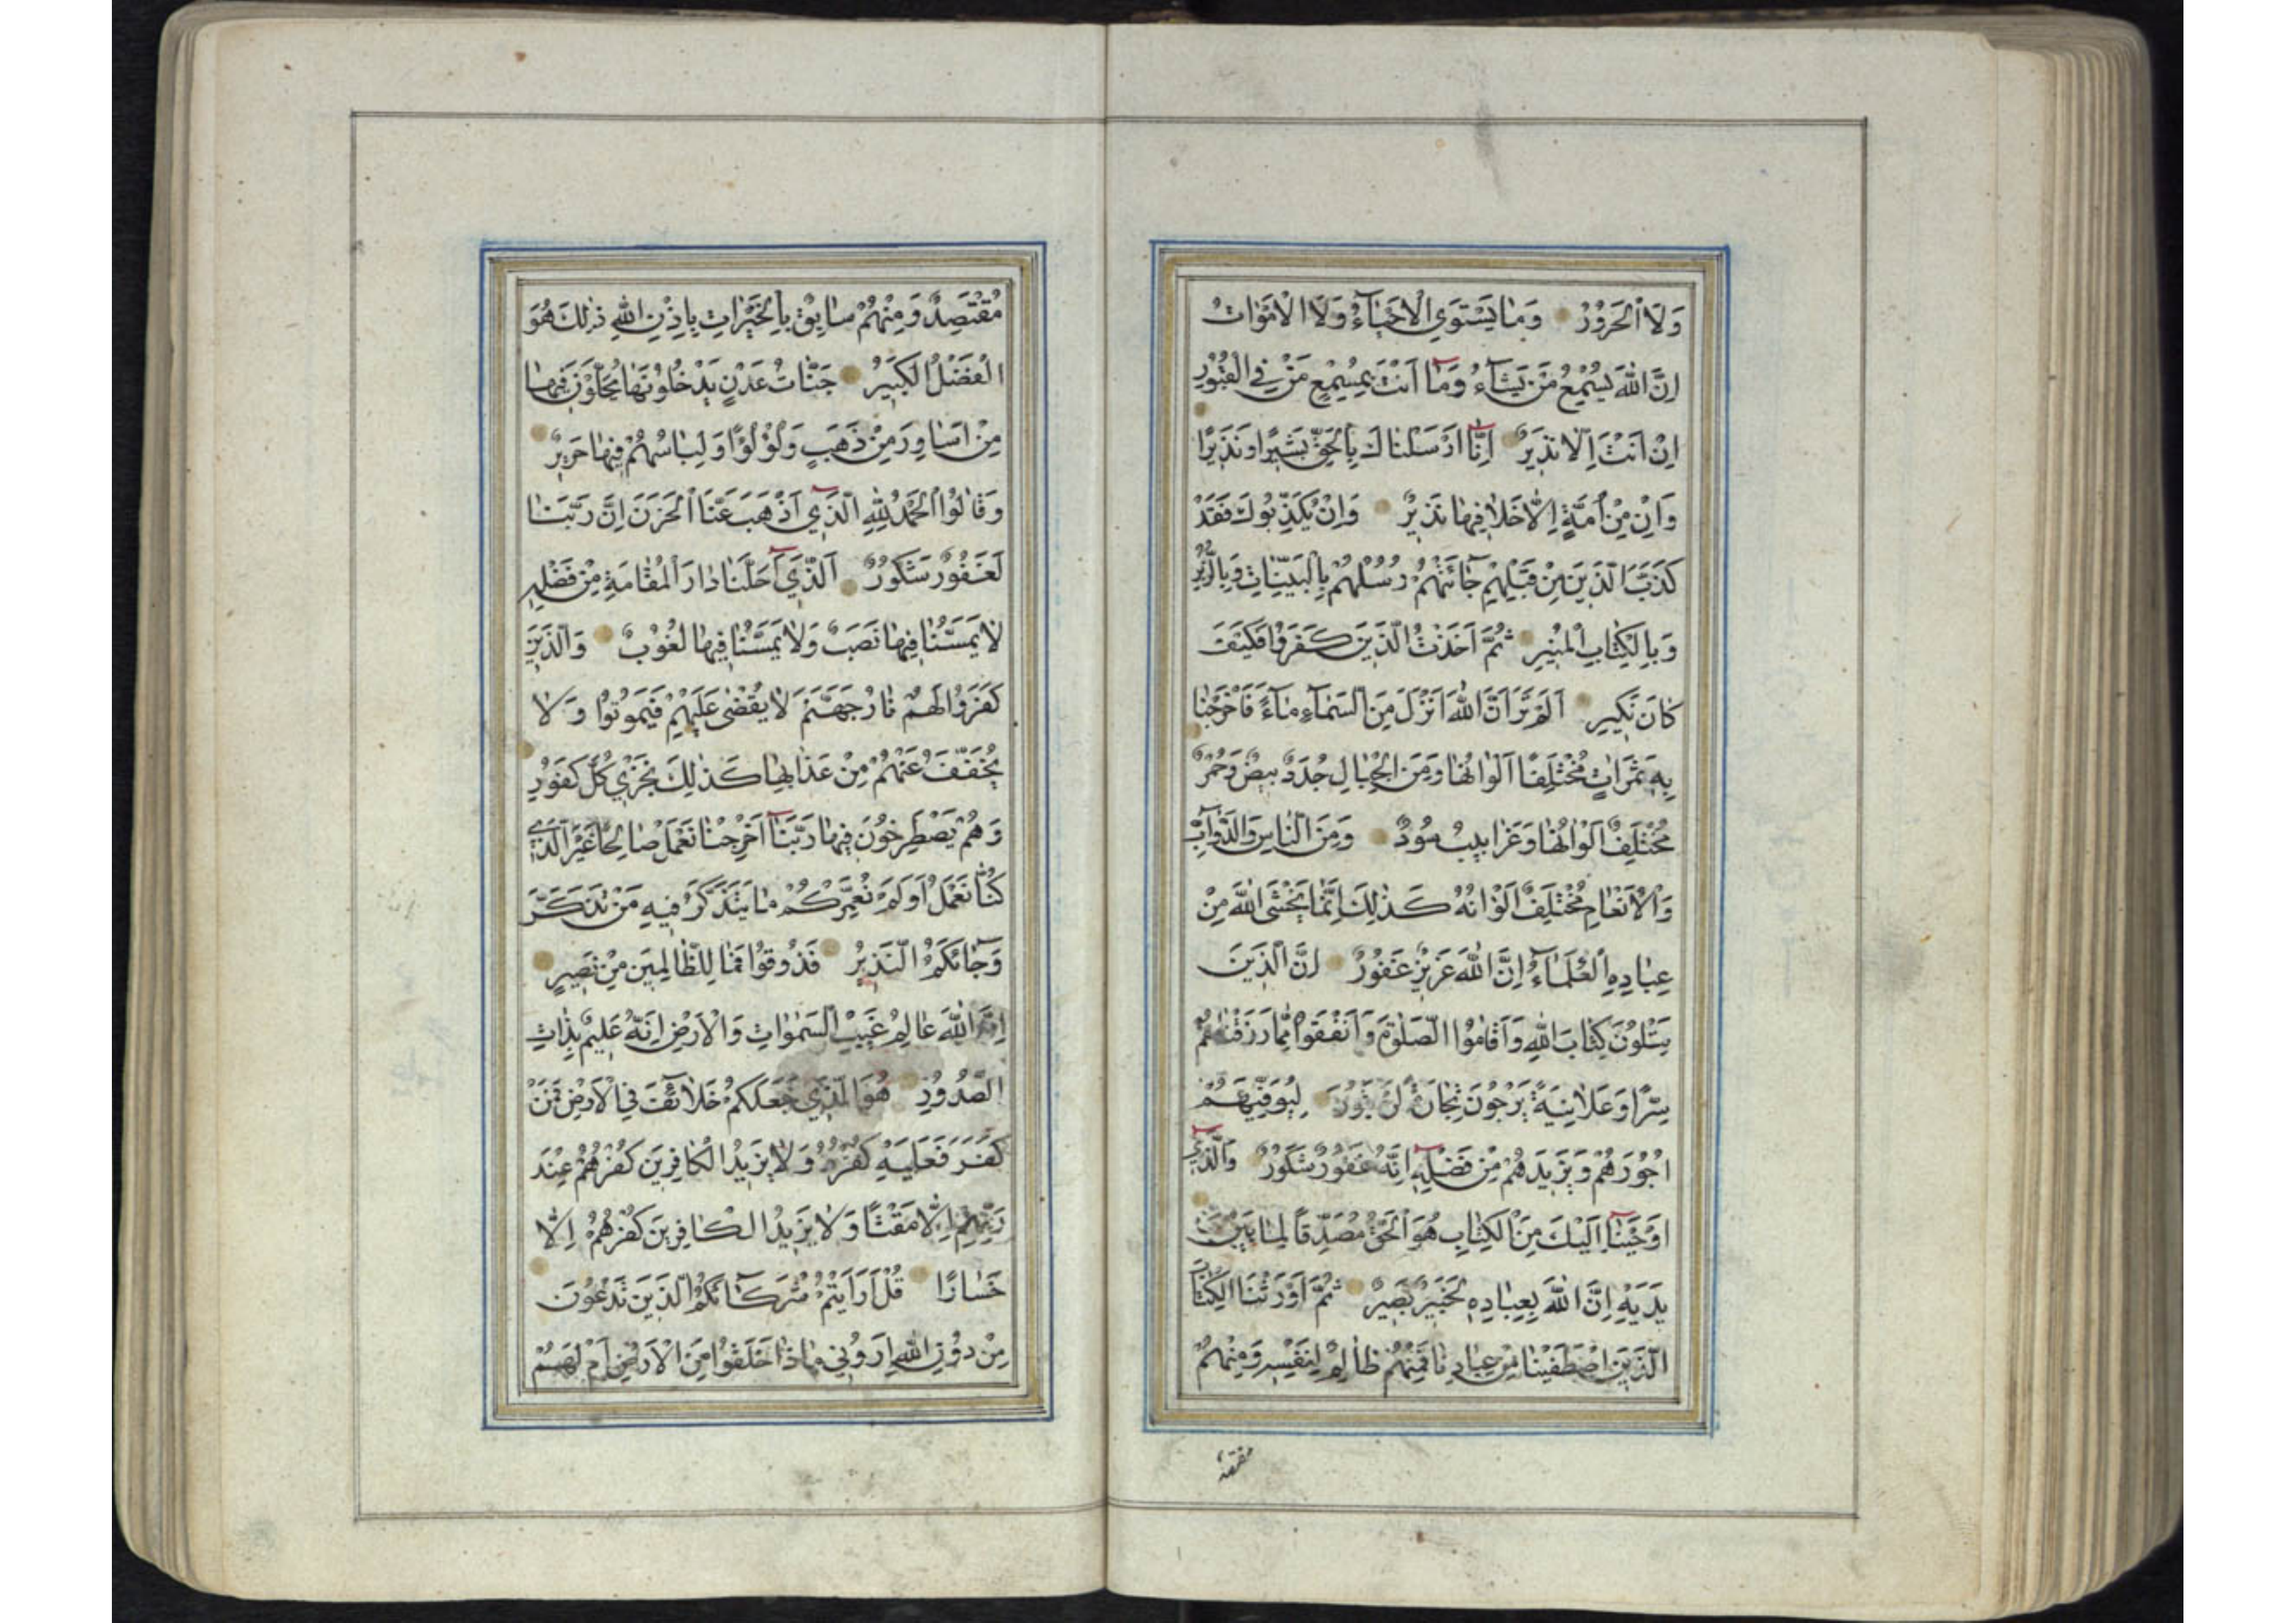 وَلَا الْحَرُورُ وَمَا يَسْتَوِي الْاَحْيَآءُ وَلَا الْاَمْوَاتُ
اِنَّ اللّٰهَ يُسْمِعُ مَنْ يَشَآءُ وَمَآ اَنْتَ بِمُسْمِعٍ مَنْ فِي الْقُبُورِ
اِنْ اَنْتَ اِلَّا نَذِيرٌ اِنَّآ اَرْسَلْنَاكَ بِالْحَقِّ بَشِيرًا وَنَذِيرًا
وَاِنْ مِنْ اُمَّةٍ اِلَّا خَلَا فِيهَا نَذِيرٌ وَاِنْ يُكَذِّبُوكَ فَقَدْ
كَذَّبَ الَّذِينَ مِنْ قَبْلِهِمْ جَائَتْهُمْ رُسُلُهُمْ بِالْبَيِّنَاتِ وَبِالزُّبُرِ
وَبِالْكِتَابِ الْمُنِيرِ ثُمَّ اَخَذْتُ الَّذِينَ كَفَرُوا فَكَيْفَ
كَانَ نَكِيرِ اَلَمْ تَرَ اَنَّ اللّٰهَ اَنْزَلَ مِنَ السَّمَآءِ مَآءً فَاَخْرَجْنَا
بِهِ ثَمَرَاتٍ مُخْتَلِفًا اَلْوَانُهَا وَمِنَ الْجِبَالِ جُدَدٌ بِيضٌ وَحُمْرٌ
مُخْتَلِفٌ اَلْوَانُهَا وَغَرَابِيبُ سُودٌ وَمِنَ النَّاسِ وَالدَّوَآبِّ
وَالْاَنْعَامِ مُخْتَلِفٌ اَلْوَانُهُ كَذٰلِكَ اِنَّمَا يَخْشَى اللّٰهَ مِنْ
عِبَادِهِ الْعُلَمَآءُ اِنَّ اللّٰهَ عَزِيزٌ غَفُورٌ اِنَّ الَّذِينَ
يَتْلُونَ كِتَابَ اللّٰهِ وَاَقَامُوا الصَّلٰوةَ وَاَنْفَقُوا مِمَّا رَزَقْنَاهُمْ
سِرًّا وَعَلَانِيَةً يَرْجُونَ تِجَارَةً لَنْ تَبُورَ لِيُوَفِّيَهُمْ
اُجُورَهُمْ وَيَزِيدَهُمْ مِنْ فَضْلِهِ اِنَّهُ غَفُورٌ شَكُورٌ وَالَّذِي
اَوْحَيْنَآ اِلَيْكَ مِنَ الْكِتَابِ هُوَ الْحَقُّ مُصَدِّقًا لِمَا بَيْنَ
يَدَيْهِ اِنَّ اللّٰهَ بِعِبَادِهِ لَخَبِيرٌ بَصِيرٌ ثُمَّ اَوْرَثْنَا الْكِتَابَ
الَّذِينَ اصْطَفَيْنَا مِنْ عِبَادِنَا فَمِنْهُمْ ظَالِمٌ لِنَفْسِهِ وَمِنْهُمْ
مقتصد
مُقْتَصِدٌ وَمِنْهُمْ سَابِقٌ بِالْخَيْرَاتِ بِاِذْنِ اللّٰهِ ذٰلِكَ هُوَ
الْفَضْلُ الْكَبِيرُ جَنَّاتُ عَدْنٍ يَدْخُلُونَهَا يُحَلَّوْنَ فِيهَا
مِنْ اَسَاوِرَ مِنْ ذَهَبٍ وَلُؤْلُؤًا وَلِبَاسُهُمْ فِيهَا حَرِيرٌ
وَقَالُوا الْحَمْدُ لِلّٰهِ الَّذِي اَذْهَبَ عَنَّا الْحَزَنَ اِنَّ رَبَّنَا
لَغَفُورٌ شَكُورٌ اَلَّذِي اَحَلَّنَا دَارَ الْمُقَامَةِ مِنْ فَضْلِهِ
لَا يَمَسُّنَا فِيهَا نَصَبٌ وَلَا يَمَسُّنَا فِيهَا لُغُوبٌ وَالَّذِينَ
كَفَرُوا لَهُمْ نَارُ جَهَنَّمَ لَا يُقْضٰى عَلَيْهِمْ فَيَمُوتُوا وَلَا
يُخَفَّفُ عَنْهُمْ مِنْ عَذَابِهَا كَذٰلِكَ نَجْزِي كُلَّ كَفُورٍ
وَهُمْ يَصْطَرِخُونَ فِيهَا رَبَّنَآ اَخْرِجْنَا نَعْمَلْ صَالِحًا غَيْرَ الَّذِي
كُنَّا نَعْمَلُ اَوَلَمْ نُعَمِّرْكُمْ مَا يَتَذَكَّرُ فِيهِ مَنْ تَذَكَّرَ
وَجَآئَكُمُ النَّذِيرُ فَذُوقُوا فَمَا لِلظَّالِمِينَ مِنْ نَصِيرٍ
اِنَّ اللّٰهَ عَالِمُ غَيْبِ السَّمٰوَاتِ وَالْاَرْضِ اِنَّهُ عَلِيمٌ بِذَاتِ
الصُّدُورِ هُوَ الَّذِي جَعَلَكُمْ خَلَآئِفَ فِي الْاَرْضِ فَمَنْ
كَفَرَ فَعَلَيْهِ كُفْرُهُ وَلَا يَزِيدُ الْكَافِرِينَ كُفْرُهُمْ عِنْدَ
رَبِّهِمْ اِلَّا مَقْتًا وَلَا يَزِيدُ الْكَافِرِينَ كُفْرُهُمْ اِلَّا
خَسَارًا قُلْ اَرَاَيْتُمْ شُرَكَآئَكُمُ الَّذِينَ تَدْعُونَ
مِنْ دُونِ اللّٰهِ اَرُونِي مَاذَا خَلَقُوا مِنَ الْاَرْضِ اَمْ لَهُمْ